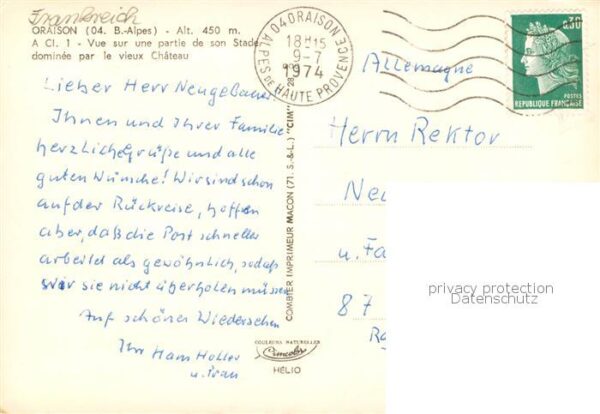 Frankreich
ORAISON (04. B.-Alpes) - Alt. 450 m.
A Cl. 1 - Vue sur une partie de son Stade
dominée par le vieux Château
Lieber Herr Neugebauer
Ihnen und Ihrer Familie
herzliche Grüße und alle
guten Wünsche! Wir sind schon
auf der Rückreise, hoffen
aber, daß die Post schneller
arbeitet als gewöhnlich, sodaß
wir sie nicht überholen müssen
Auf schönes Wiedersehen
Ihr Hans Holler
u. Frau
COMBIER IMPRIMEUR MACON (71. S.-&-L.) "CIM"
COULEURS NATURELLES
Cimcolor
HÉLIO
04 ORAISON
18H15
9-7
1974
ALPES DE HAUTE PROVENCE
0,30
POSTES
REPUBLIQUE FRANÇAISE
Allemagne
Herrn Rektor
Neu
u. Fa
87
privacy protection
Datenschutz